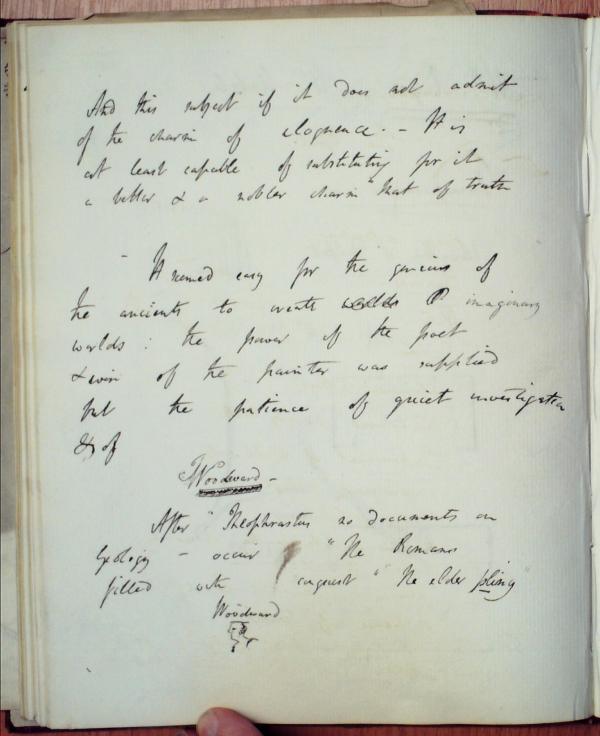 And this subject if it does not admit
of the charm of eloquence. – It is
at least capable of substituting for it
a better & a nobler charm "that of truth
– It seemed easy for the genius of
the ancients to create worlds imaginary
worlds : the power of the poet
& even of the painter was supplied
but the patience of quiet investigation
& of
Woodward –
After " Theophrastus no documents on
Geology – occur "The Romans
filled with conquest " The elder pliny
Woodward